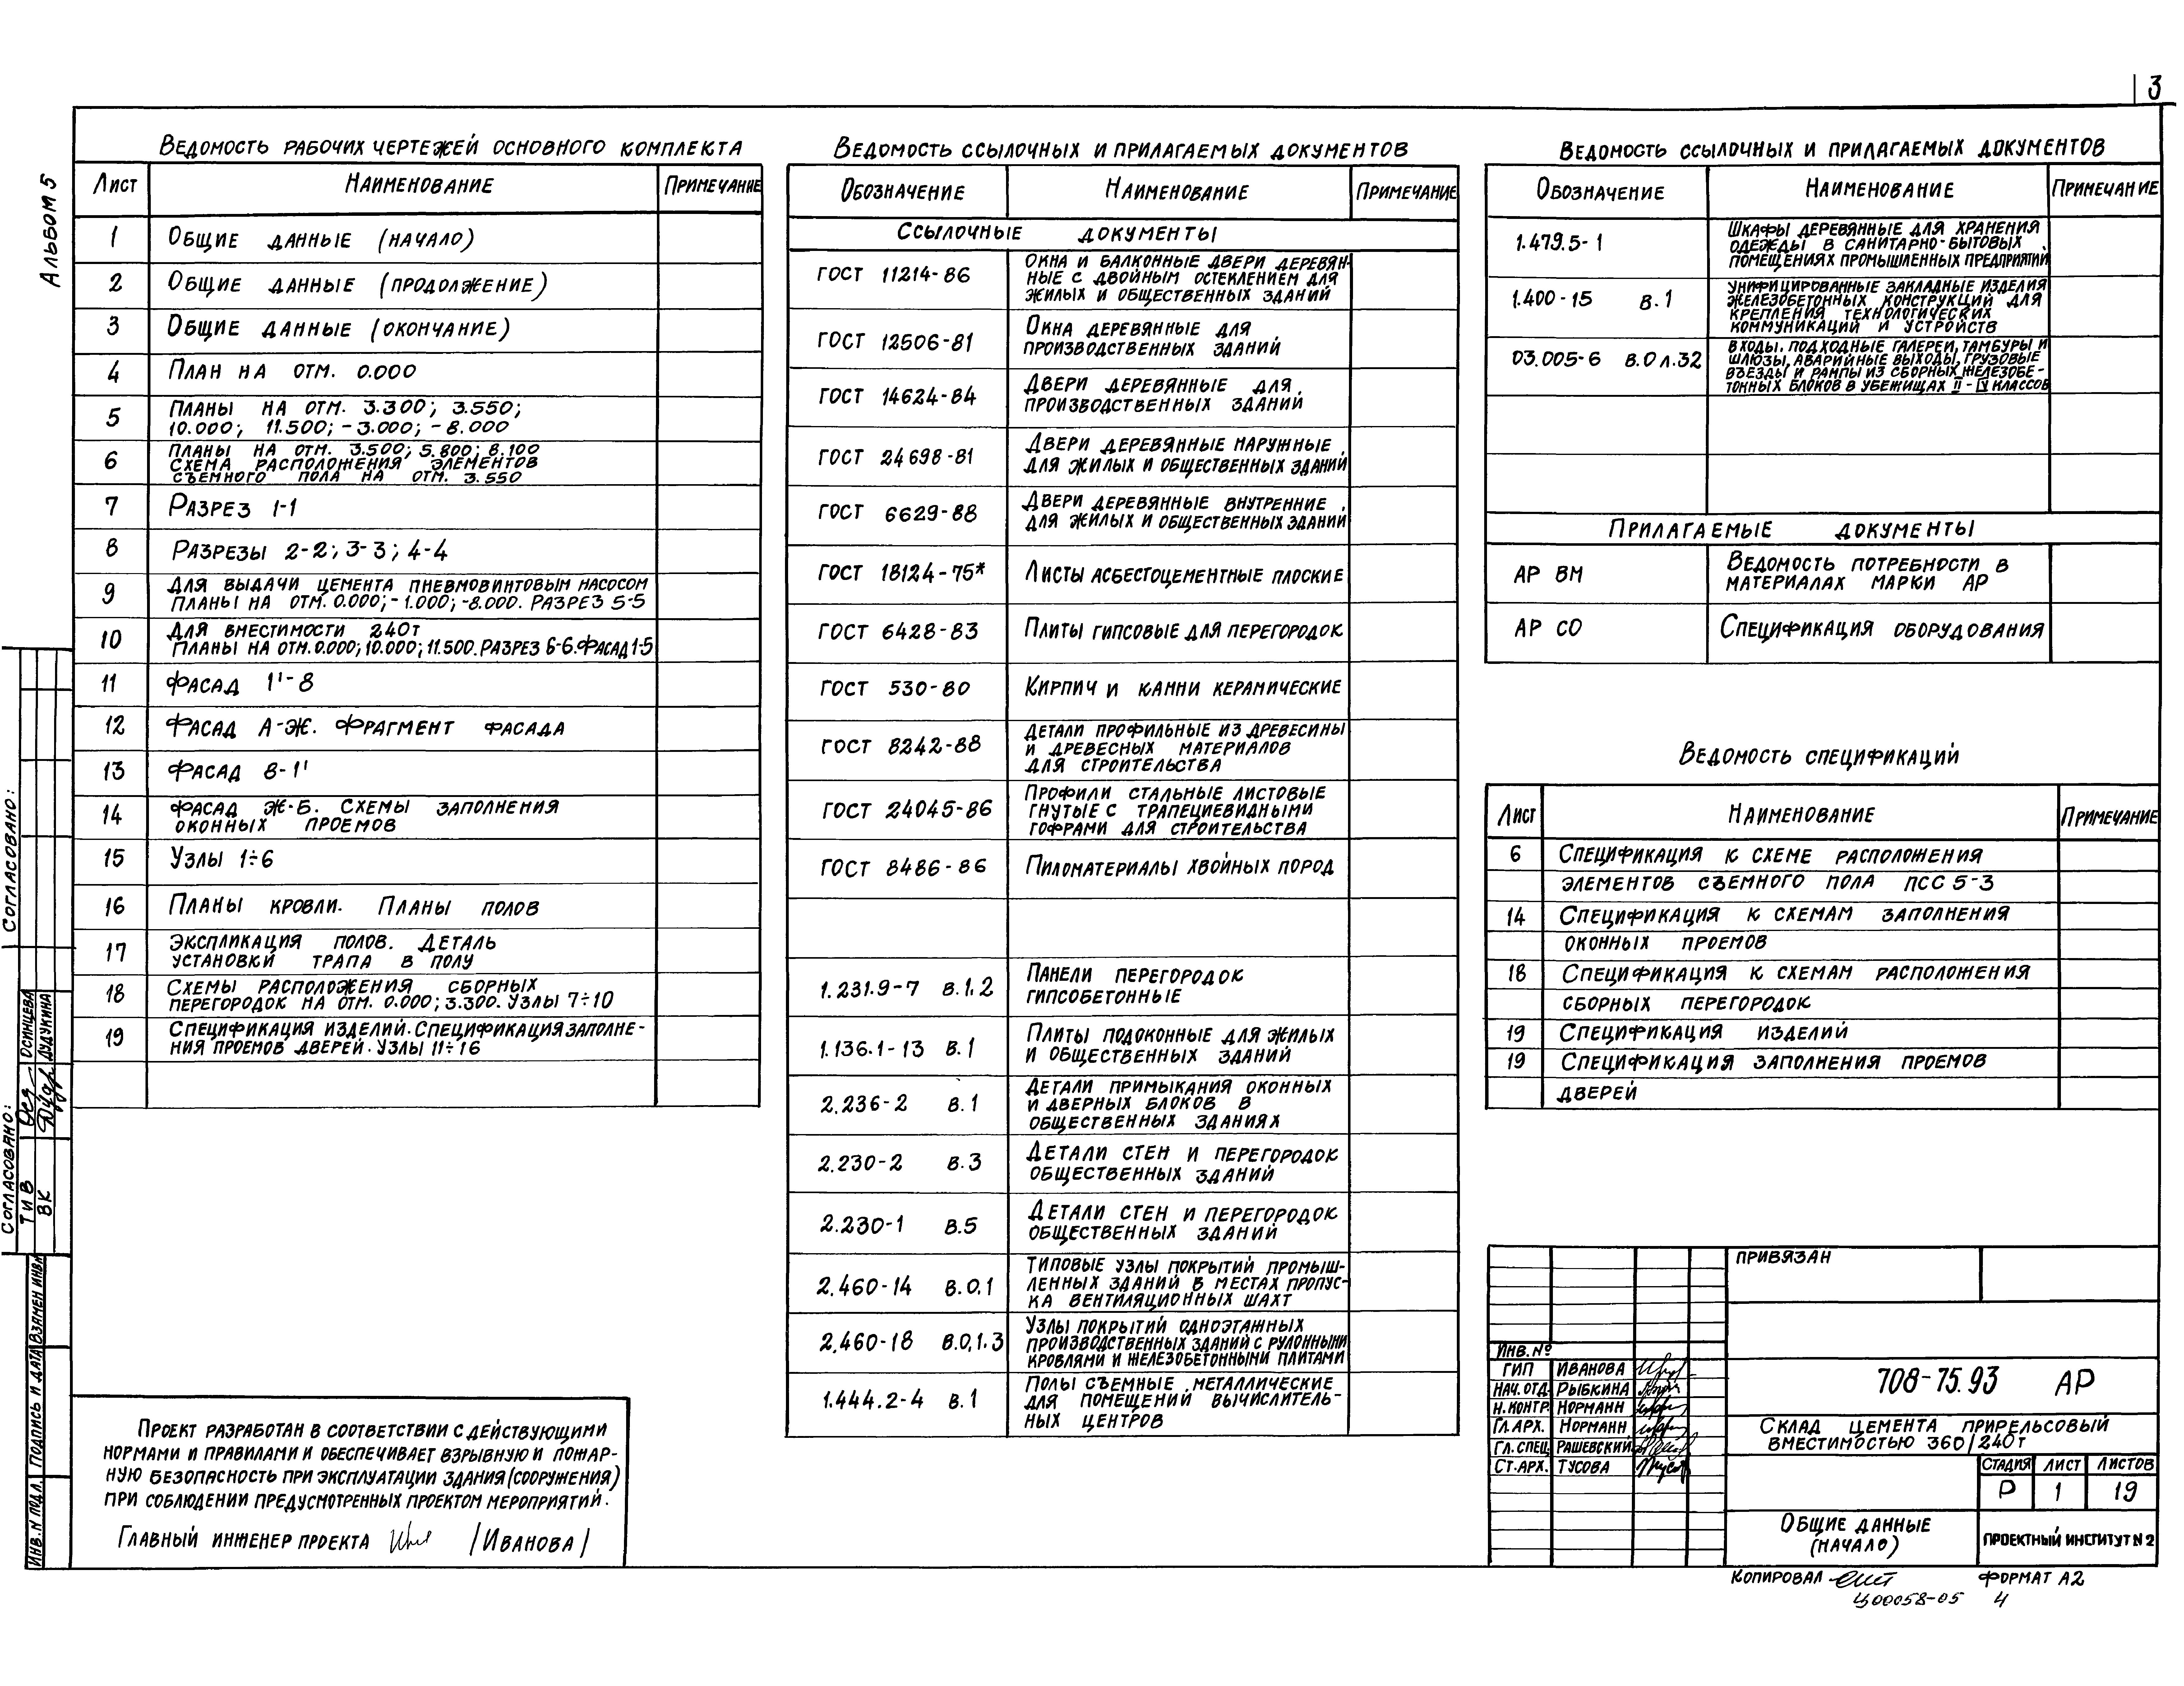 3
Альбом 5
Ведомость рабочих чертежей основного комплекта
Лист Наименование Примечание
1 Общие данные (начало)
2 Общие данные (продолжение)
3 Общие данные (окончание)
4 План на отм. 0.000
5 Планы на отм. 3.300; 3.550;
10.000; 11.500; -3.000; -8.000
6 Планы на отм. 3.500; 5.800; 8.100
Схема расположения элементов
съемного пола на отм. 3.550
7 Разрез 1-1
8 Разрезы 2-2; 3-3; 4-4
9 Для выдачи цемента пневмовинтовым насосом
Планы на отм. 0.000; -1.000; -8.000. Разрез 5-5
10 Для вместимости 240т
Планы на отм. 0.000; 10.000; 11.500. Разрез 6-6. Фасад 1-5
11 Фасад 1'-8
12 Фасад А-Ж. Фрагмент фасада
13 Фасад 8-1'
14 Фасад Ж-Б. Схемы заполнения
оконных проемов
15 Узлы 1÷6
16 Планы кровли. Планы полов
17 Экспликация полов. Деталь
установки трапа в полу
18 Схемы расположения сборных
перегородок на отм. 0.000; 3.300. Узлы 7÷10
19 Спецификация изделий. Спецификация заполне-
ния проемов дверей. Узлы 11÷16
Проект разработан в соответствии с действующими
нормами и правилами и обеспечивает взрывную и пожар-
ную безопасность при эксплуатации здания (сооружения)
при соблюдении предусмотренных проектом мероприятий.
Главный инженер проекта /Иванова/
Ведомость ссылочных и прилагаемых документов
Обозначение Наименование Примечание
Ссылочные документы
ГОСТ 11214-86 Окна и балконные двери деревян-
ные с двойным остеклением для
жилых и общественных зданий
ГОСТ 12506-81 Окна деревянные для
производственных зданий
ГОСТ 14624-84 Двери деревянные для
производственных зданий
ГОСТ 24698-81 Двери деревянные наружные
для жилых и общественных зданий
ГОСТ 6629-88 Двери деревянные внутренние
для жилых и общественных зданий
ГОСТ 18124-75* Листы асбестоцементные плоские
ГОСТ 6428-83 Плиты гипсовые для перегородок
ГОСТ 530-80 Кирпич и камни керамические
ГОСТ 8242-88 Детали профильные из древесины
и древесных материалов
для строительства
ГОСТ 24045-86 Профили стальные листовые
гнутые с трапециевидными
гофрами для строительства
ГОСТ 8486-86 Пиломатериалы хвойных пород
1.231.9-7 в.1,2 Панели перегородок
гипсобетонные
1.136.1-13 в.1 Плиты подоконные для жилых
и общественных зданий
2.236-2 в.1 Детали примыкания оконных
и дверных блоков в
общественных зданиях
2.230-2 в.3 Детали стен и перегородок
общественных зданий
2.230-1 в.5 Детали стен и перегородок
общественных зданий
2.460-14 в.0,1 Типовые узлы покрытий промыш-
ленных зданий в местах пропус-
ка вентиляционных шахт
2.460-18 в.0,1.3 Узлы покрытий одноэтажных
производственных зданий с рулонными
кровлями и железобетонными плитами
1.444.2-4 в.1 Полы съемные металлические
для помещений вычислитель-
ных центров
Ведомость ссылочных и прилагаемых документов
Обозначение Наименование Примечание
1.479.5-1 Шкафы деревянные для хранения
одежды в санитарно-бытовых
помещениях промышленных предприятий
1.400-15 в.1 Унифицированные закладные изделия
железобетонных конструкций для
крепления технологических
коммуникаций и устройств
03.005-6 в.0 л.32 Входы, подходные галереи, тамбуры и
шлюзы, аварийные выходы, грузовые
въезды и рампы из сборных железобе-
тонных блоков в убежищах II-IV классов
Прилагаемые документы
АР ВМ Ведомость потребности в
материалах марки АР
АР СО Спецификация оборудования
Ведомость спецификаций
Лист Наименование Примечание
6 Спецификация к схеме расположения
элементов съемного пола ПСС 5-3
14 Спецификация к схемам заполнения
оконных проемов
18 Спецификация к схемам расположения
сборных перегородок
19 Спецификация изделий
19 Спецификация заполнения проемов
дверей
Привязан
Инв.№
ГИП Иванова
Нач.отд. Рыбкина
Н.контр. Норманн
Гл.арх. Норманн
Гл.спец. Рашевский
Ст.арх. Тусова
708-75.93 АР
Склад цемента прирельсовый
вместимостью 360/240т
Стадия Лист Листов
Р 1 19
Общие данные
(начало)
Проектный институт №2
Копировал Формат А2
Ц00058-05 4
Согласовано:
Согласовано:
ТиВ Осинцева
ВК Дудукина
Инв.№ подл. Подпись и дата Взамен инв.№